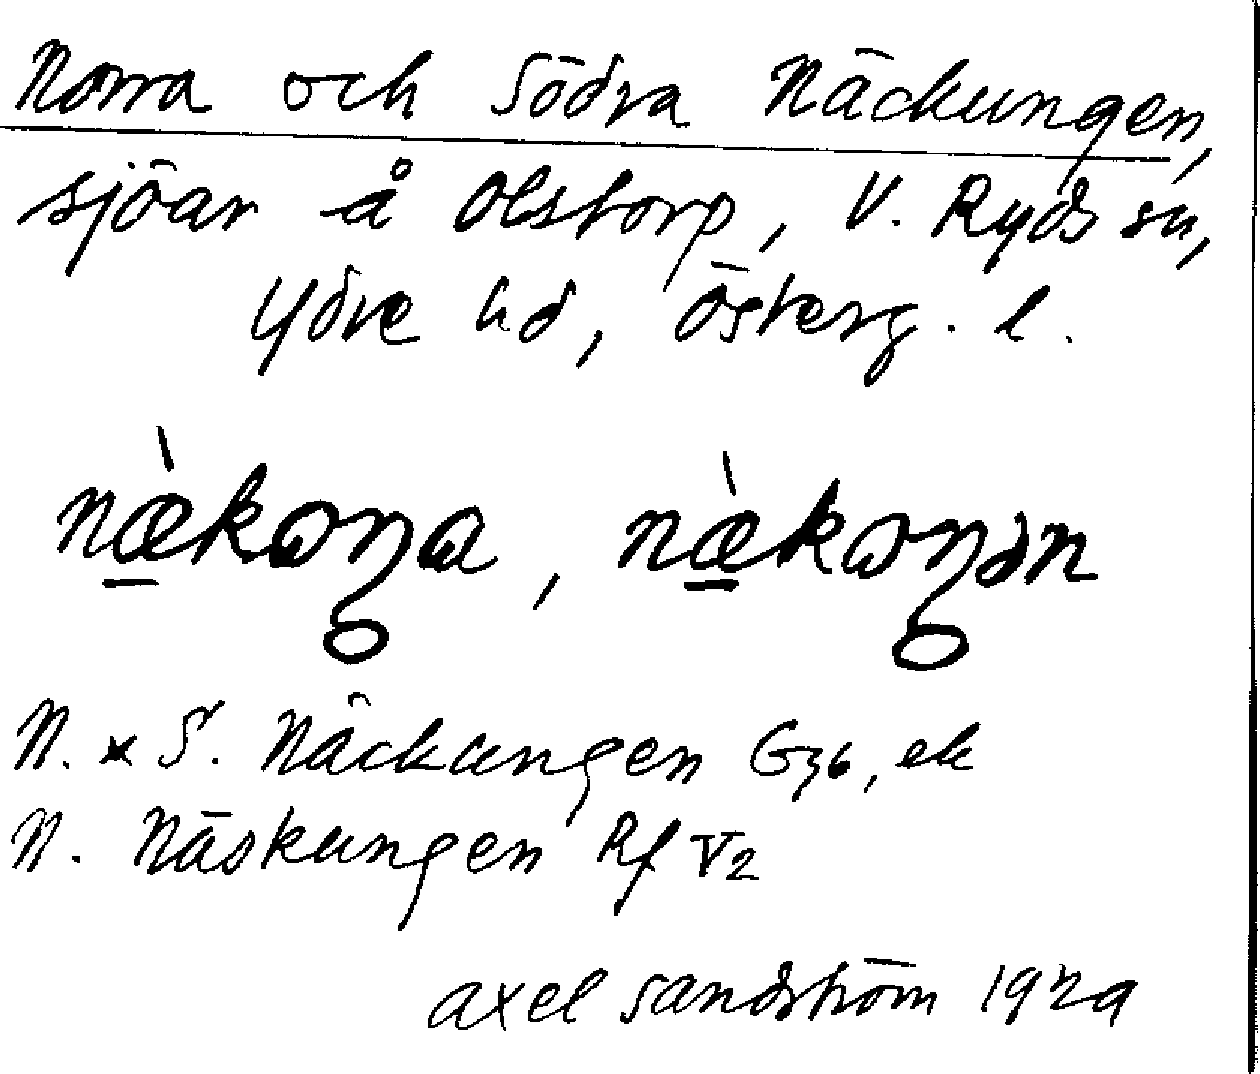 Norra och Södra Näckungen,
sjöar å Olstorp, V. Ryds sn,
Ydre hd, Österg. l.
næ̠̀koŋa, næ̠̀koŋən
N. x S. Näckungen G36, ek
N. Näskungen Rf V2
Axel Sandström 1929